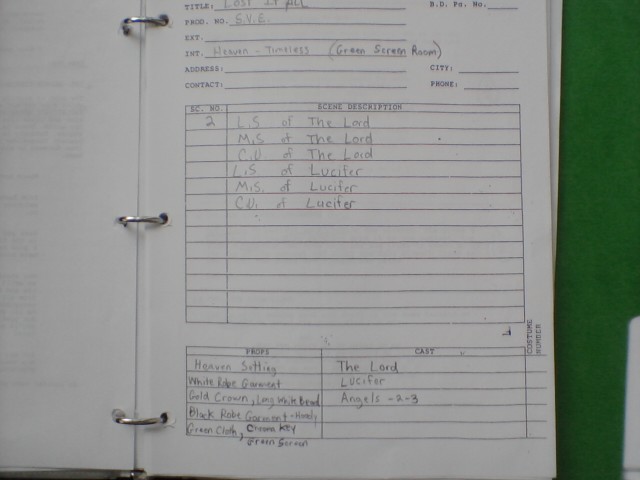 TITLE: Lost It All B.D. Pg. No.
PROD. NO. S.V.E.
EXT.
INT. Heaven - Timeless (Green Screen Room)
ADDRESS: CITY:
CONTACT: PHONE:
SC. NO. SCENE DESCRIPTION
2 L.S of The Lord
M.S of The Lord
C.U of The Lord
L.S of Lucifer
M.S. of Lucifer
C.U. of Lucifer
PROPS CAST COSTUME NUMBER
Heaven Setting The Lord
White Robe Garment Lucifer
Gold Crown, Long White Beard Angels -2-3
Black Robe Garment -
Green Cloth, Chroma Key
Green Screen